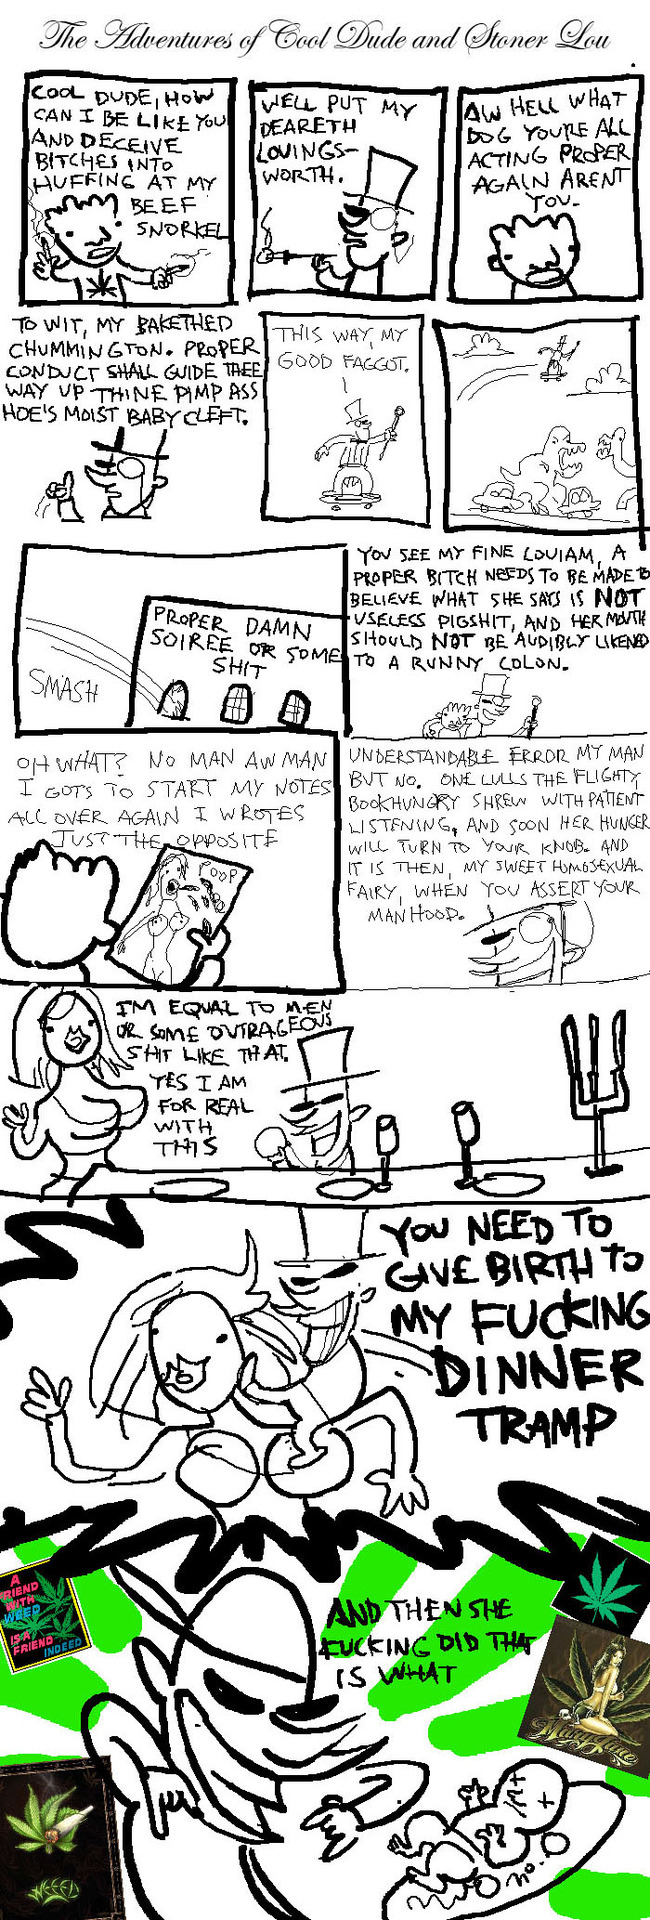 The Adventures of Cool Dude and Stoner Lou
COOL DUDE, HOW
CAN I BE LIKE YOU
AND DECEIVE
BITCHES INTO
HUFFING AT MY
BEEF
SNORKEL
WELL PUT MY
DEARETH
LOVINGS-
WORTH.
AW HELL WHAT
DOG YOU'RE ALL
ACTING PROPER
AGAIN ARENT
YOU.
TO WIT, MY BAKETHED
CHUMMINGTON. PROPER
CONDUCT SHALL GUIDE THEE
WAY UP THINE PIMP ASS
HOE'S MOIST BABY CLEFT.
THIS WAY, MY
GOOD FAGGOT.
SMASH
PROPER DAMN
SOIREE OR SOME
SHIT
YOU SEE MY FINE LOUIAM, A
PROPER BITCH NEEDS TO BE MADE TO
BELIEVE WHAT SHE SAYS IS NOT
USELESS PIGSHIT, AND HER MOUTH
SHOULD NOT BE AUDIBLY LIKENED
TO A RUNNY COLON.
OH WHAT? NO MAN AW MAN
I GOTS TO START MY NOTES
ALL OVER AGAIN I WROTES
JUST THE OPPOSITE
POOP
UNDERSTANDABLE ERROR MY MAN
BUT NO. ONE LULLS THE FLIGHTY,
BOOKHUNGRY SHREW WITH PATIENT
LISTENING, AND SOON HER HUNGER
WILL TURN TO YOUR KNOB. AND
IT IS THEN, MY SWEET HOMOSEXUAL
FAIRY, WHEN YOU ASSERT YOUR
MANHOOD.
I'M EQUAL TO MEN
OR SOME OUTRAGEOUS
SHIT LIKE THAT.
YES I AM
FOR REAL
WITH
THIS
YOU NEED TO
GIVE BIRTH TO
MY FUCKING
DINNER
TRAMP
A
FRIEND
WITH
WEED
IS A
FRIEND
INDEED
AND THEN SHE
FUCKING DID THAT
IS WHAT
Mary Jane
WEEED
no.